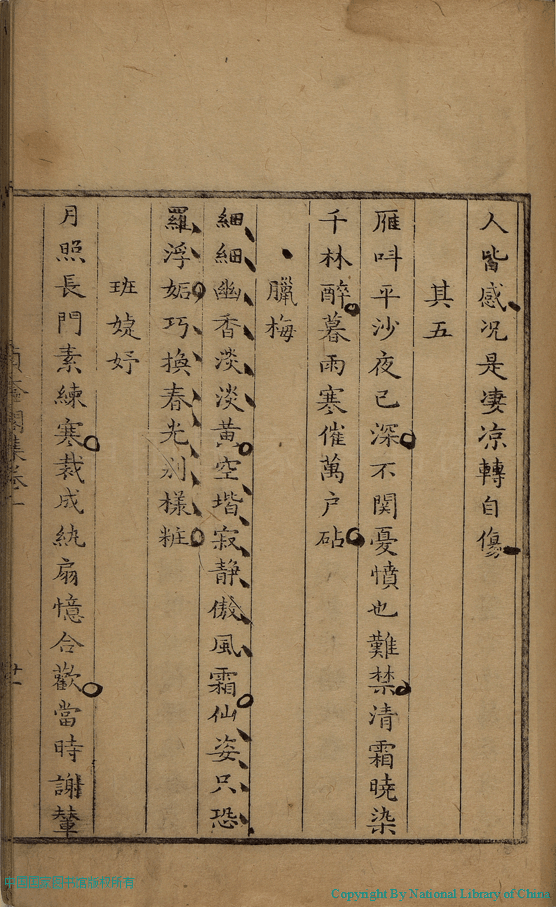 人皆感况是凄凉轉自傷
其五
雁呌平沙夜已深不関憂憤也難禁清霜曉染
千林醉暮雨寒催萬戶砧
臘梅
細細幽香淡淡黃空堦寂静傲風霜仙姿只恐
羅浮妬巧換春光別樣粧
班婕妤
月照長門素練寒裁成紈扇憶合歡當時謝輦
集卷一
Copyright By National Library of China